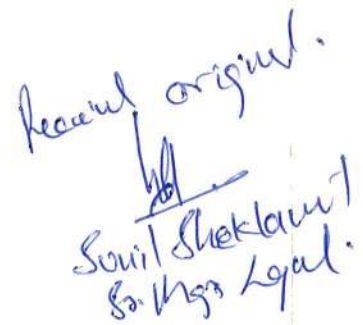 Received original.
Sunil Sheklawat
Sr. Mgr Legal.